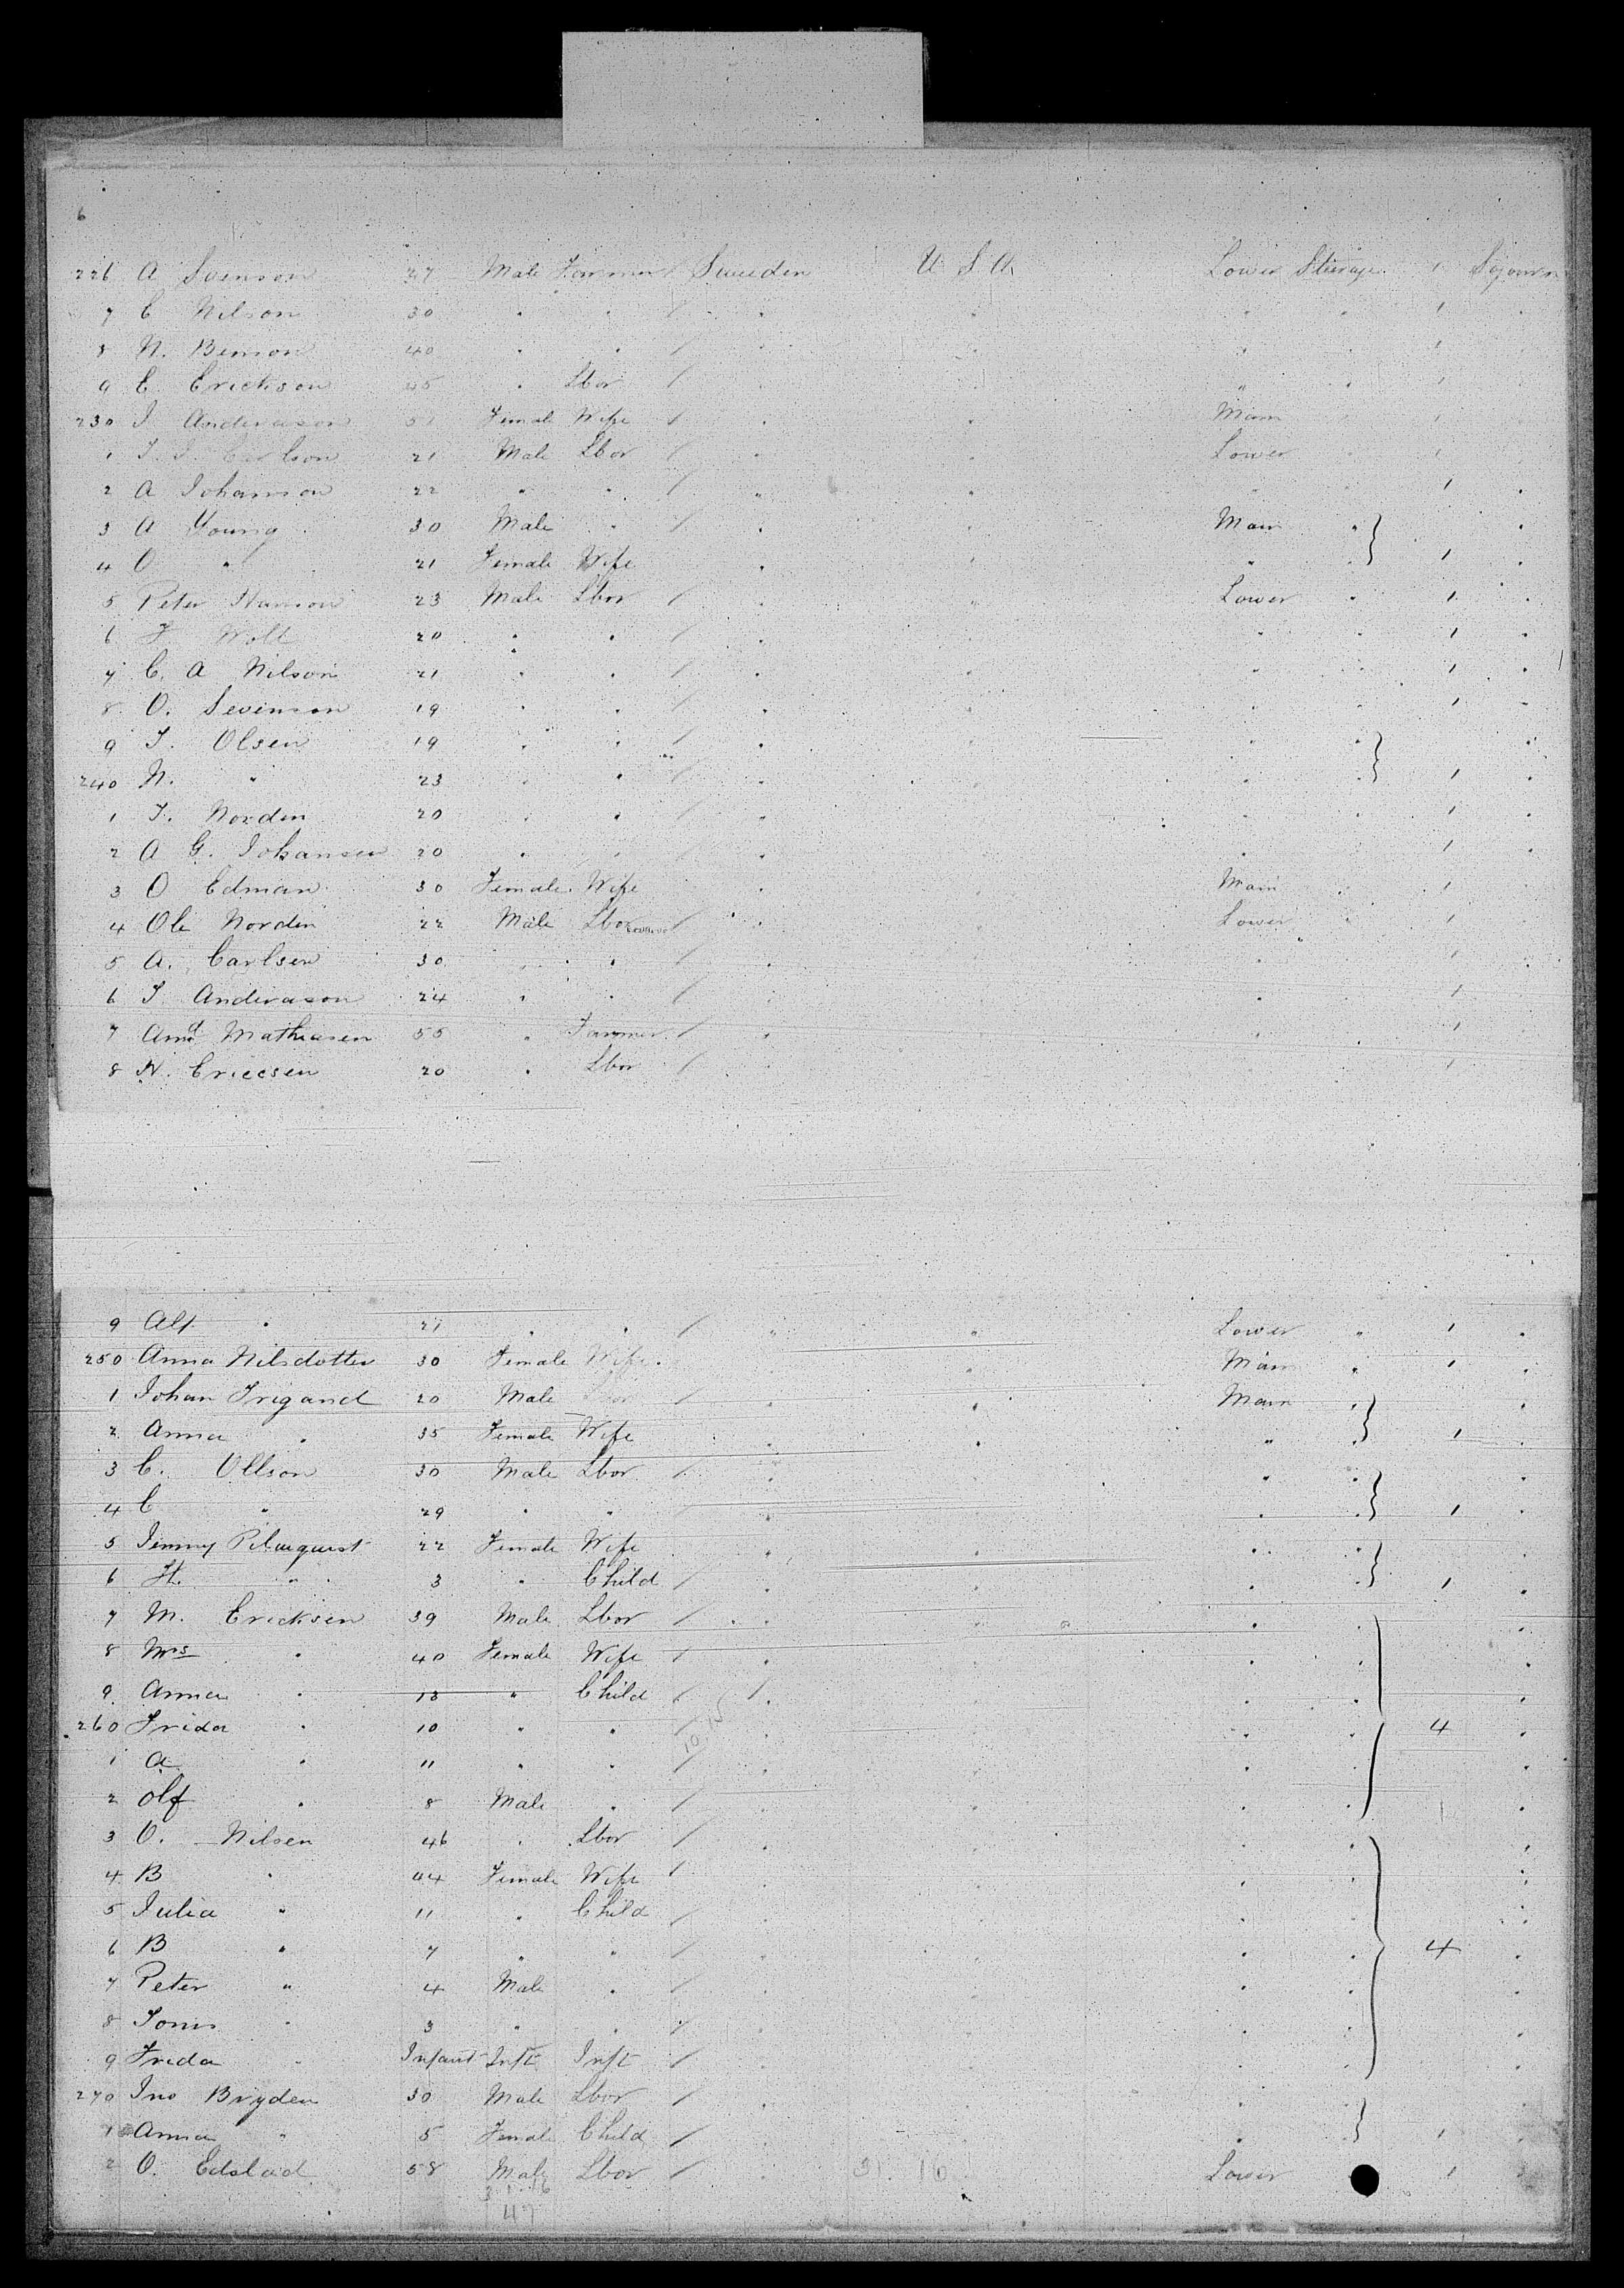 6
226 A Svenson 27 Male Farmer / Sweden U S A Lower Steerage 1 Sojourn
7 C Nilson 30 " " / " " " " 1 "
8 N. Benson 40 " " / " " " " 1 "
9 E. Erickson 45 " Lbor / " " " " 1
230 I Anderason Female Wife / " " Main " 1
1 J. J. Carlson 21 Male Lbor / " " Lower " 1
2 A Johanson 22 " " / " " " " 1 "
3 A Young 30 Male " / " " Main " "
4 O " 21 Female Wife " " " " 1 "
5 Peter Hanson 23 Male Lbor / " " Lower " 1 "
6 J Wolt 20 " " / " " " " 1 "
7 C. A Nilson 21 " " / " " " " 1 "
8 O. Sevinson 19 " " / " " " " 1 "
9 J. Olsen 19 " " / " " " " "
240 N. " 23 " " / " " " " 1 "
1 J. Norden 20 " " / " " " " 1 "
2 A G. Johansen 20 " " / " " " " 1 "
3 O Edman 30 Female Wife " " Main " 1 "
4 Ole Norden 22 Male Lbor / " " Lower " 1 "
5 A. Carlsen 30 " " / " " " " 1 "
6 J Anderason 24 " " / " " " " 1
7 And Mathiasen 55 " Farmer / " " " " 1
8 N. Ericcsen 20 " Lbor / " " " " 1
9 Alf " 21 " " / " " Lower " 1 "
250 Anna Nilsdotter 30 Female Wife " " Main " 1 "
1 Johan Frigand 20 Male / " " Main " "
2 Anna " 35 Female Wife " " " " 1 "
3 C. Ollson 30 Male Lbor / " " " " "
4 C " 29 " " " " " " 1 "
5 Jenny 22 Female Wife " " " " "
6 H. " 3 " Child / " " " " 1 "
7 M. Ericksen 39 Male Lbor / " " " " "
8 Mrs " 40 Female Wife / " " " " "
9 Anna " 13 " Child / " " " " "
260 Frida " 10 " " / " " " " 4 "
1 A. " 11 " " / " " " " "
2 Olf " 8 Male " / " " " " "
3 O. Nilsen 46 " Lbor / " " " " "
4 B " 44 Female Wife / " " " " "
5 Julia " 11 " Child / " " " " "
6 B " 7 " " / " " " " 4 "
7 Peter " 4 Male " / " " " " "
8 " 3 " " / " " " " "
9 Frida " Infant Inft Inft / " " " " "
270 Jno Bryden 30 Male Lbor / " " " " "
1 Anna " 5 Female Child / " " " " 1 "
2 O. 58 Male Lbor / " 31. 16 Lower 1
31. 16
47